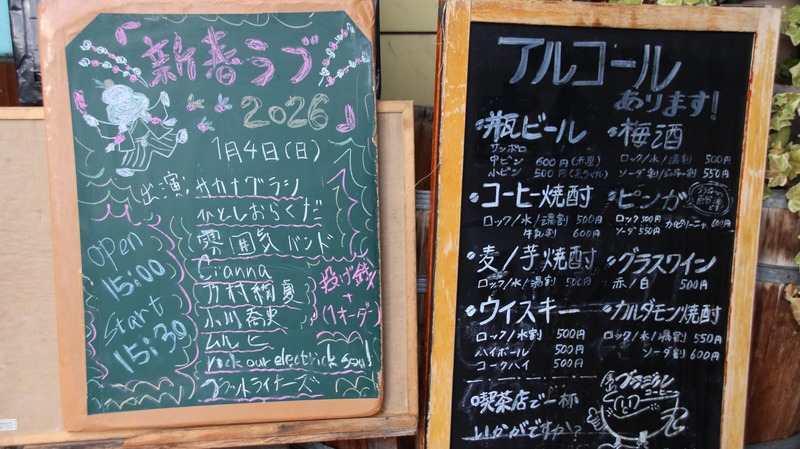 『新春ラブ
2026』
1月4日(日)
出演:サカナグラシ
ひとしおらくだ
雰囲気バンド
Cianna
乃村稍夏
小川喬史
ムルヒ
rock our electrick soul!
フットライナーズ
OPEN
15:00
Start
15:30
投げ銭
+
(1オーダー)
アルコール
あります!
瓶ビール
サッポロ
中ビン 600円(赤星)
小ビン 500円(黒ラベル)
コーヒー焼酎
ロック/水/湯割 500円
牛乳割 600円
麦/芋焼酎
ロック/水/湯割 500円
ウイスキー
ロック/水割 500円
ハイボール 500円
コークハイ 500円
喫茶店で一杯
いかがですか?
梅酒
ロック/水/湯割 500円
ソーダ割 550円
ピンガ
ロック 500円 カイピリーニャ 600円
ソーダ 550円
グラスワイン
赤/白 500円
カルダモン焼酎
ロック/水/湯割 550円
ソーダ割 600円
ブラジル
コーヒー